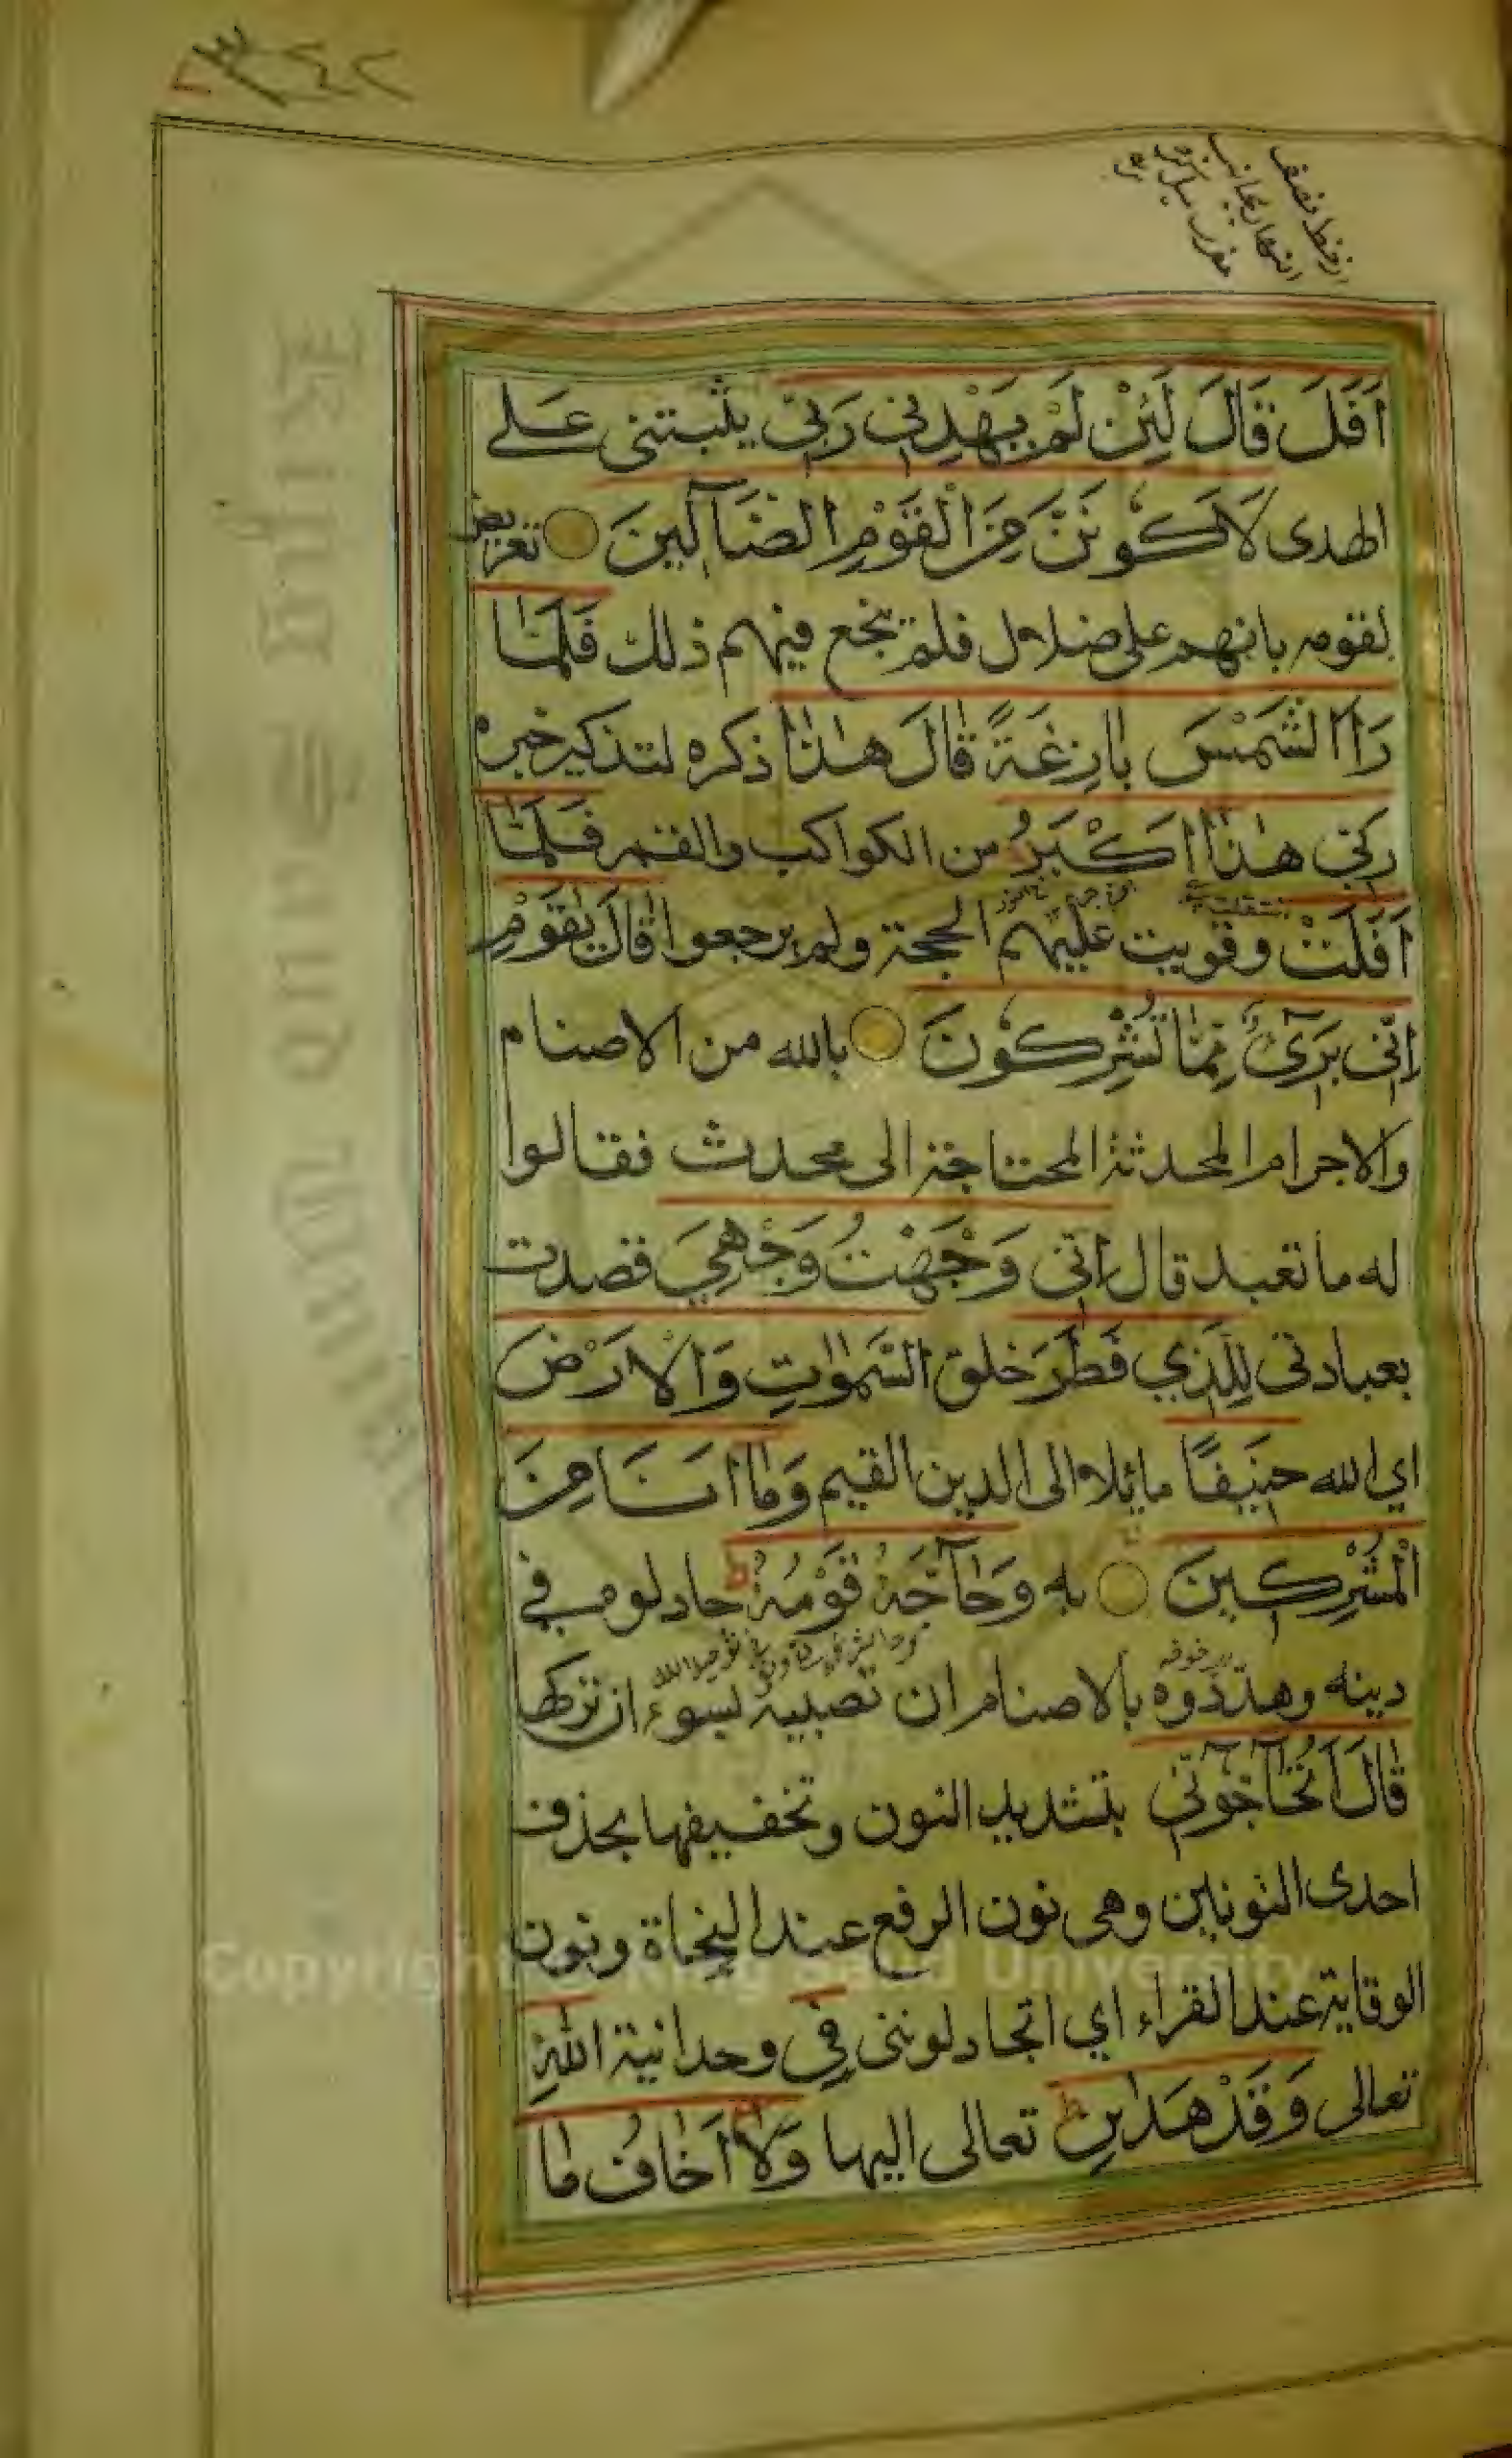 اَفَلَ قَالَ لَئِنْ لَمْ يَهْدِنِي رَبِّي يثبتنى عَلى
الهدى لَاَكُونَنَّ مِنَ الْقَوْمِ الضَّآلِّينَ تعريض
لقومه بانهم على ضلال فلم ينجع فيهم ذلك فَلَمَّا
رَاَ الشَّمْسَ بَازِغَةً قَالَ هٰذَا ذكره لتذكير خبره
رَبِّي هٰذَا اَكْبَرُ من الكواكب والقمر فَلَمَّا
اَفَلَتْ وقويت عليهم الحجة ولم يرجعوا قَالَ يٰقَوْمِ
اِنِّي بَرِيٓءٌ مِمَّا تُشْرِكُونَ بالله من الاصنام
والاجرام المحدثة المحتاجة الى محدث فقالوا
له ما تعبد قال اِنِّي وَجَّهْتُ وَجْهِيَ قصدت
بعبادتى لِلَّذِي فَطَرَ خلق السَّمٰوَاتِ وَالْاَرْضَ
اي الله حَنِيفًا مائلا الى الدين القيم وَمَا اَنَا مِنَ
الْمُشْرِكِينَ به وَحَآجَّهُ قَوْمُهُ جادلوه فى
دينه وهددوه بالاصنام ان تصيبه بسوء ان تركها
قَالَ اَتُحَآجُّوٓنِّي بتشديد النون وتخفيفها بحذف
احدى النونين وهى نون الرفع عند النحاة ونون
الوقاية عند القراء اي اتجادلوننى فِي وحدانية اللهِ
تعالى وَقَدْ هَدٰينِ تعالى اليها وَلَا اَخَافُ مَا
Copyright King Saud University